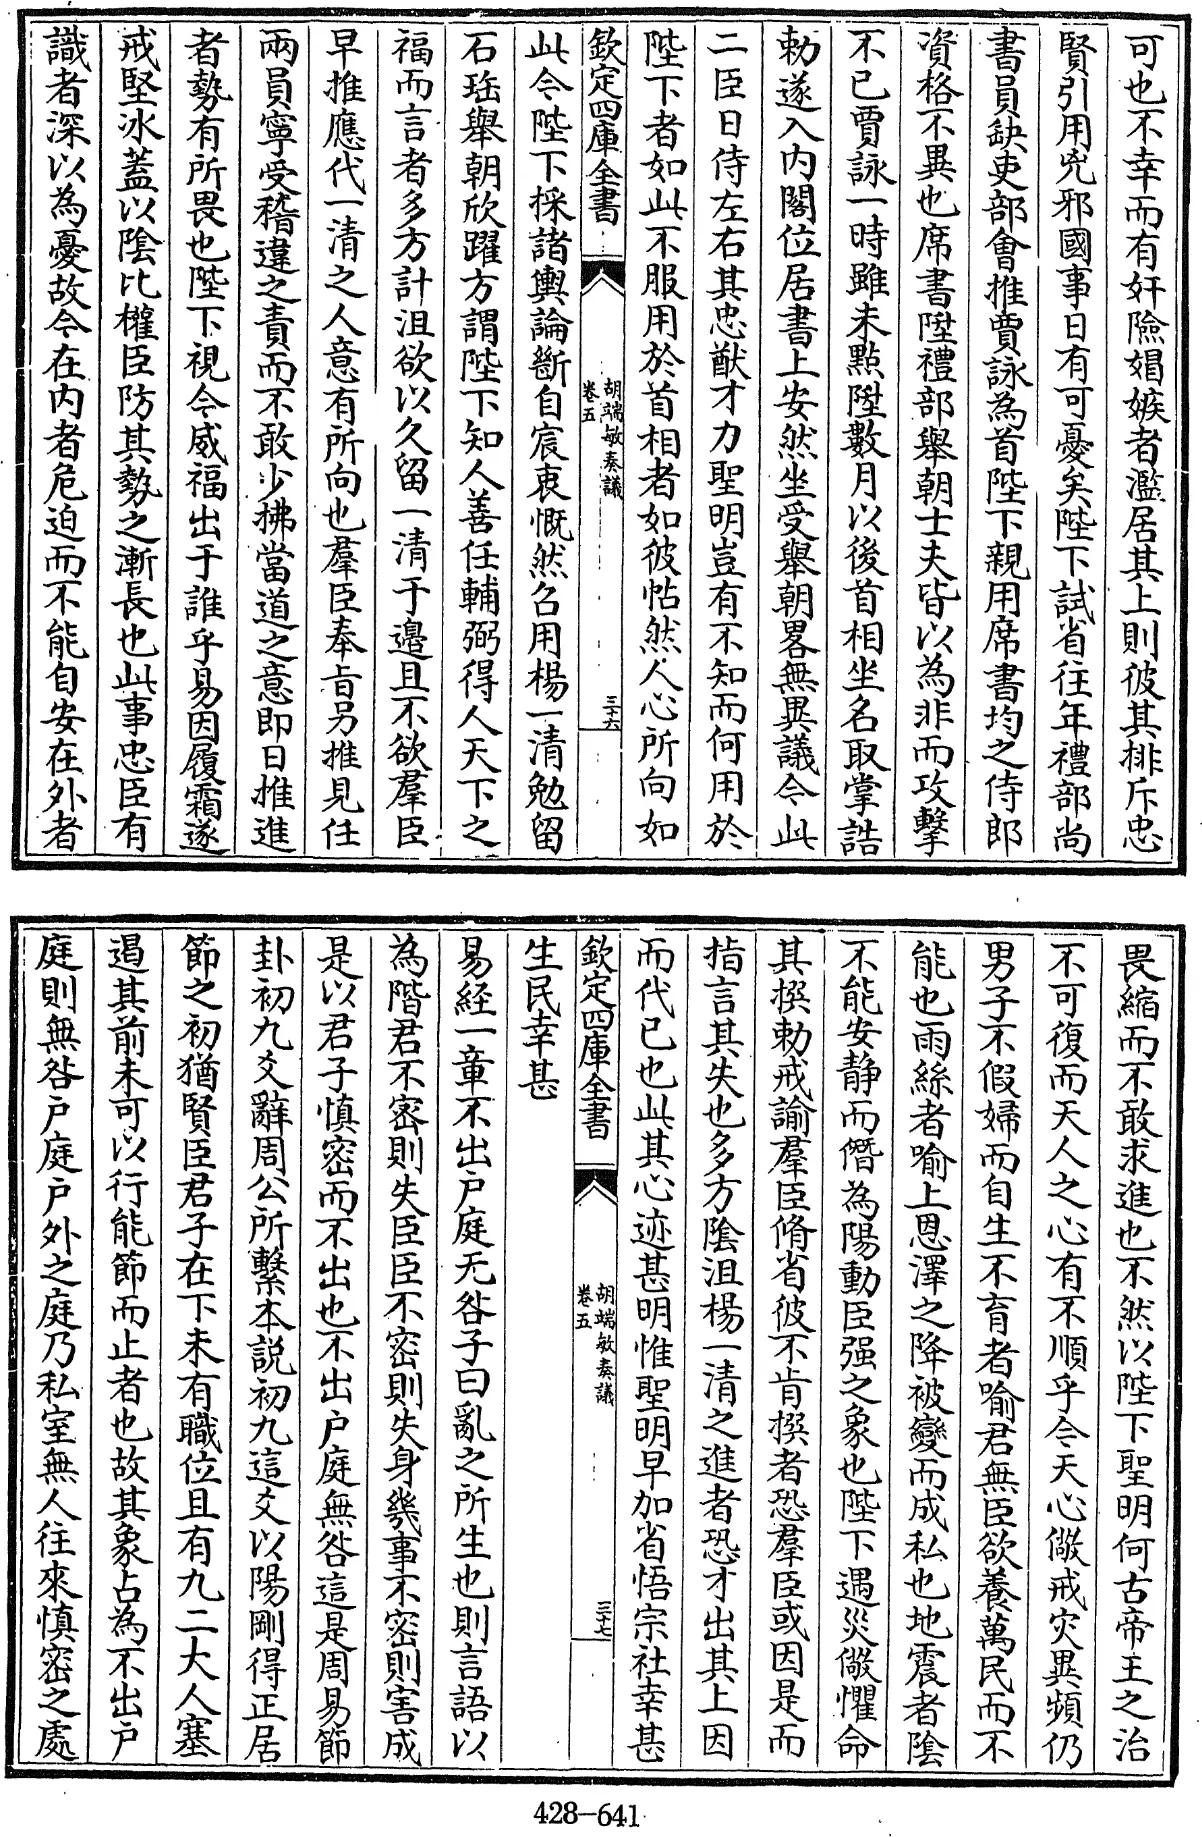 可也不幸而有奸險娼嫉者濫居其上則彼其排斥忠
賢引用兇邪國事日有可憂矣陛下試省往年禮部尚
書員缺吏部會推賈詠為首陛下親用席書均之侍郎
資格不異也席書陞禮部舉朝士夫皆以為非而攻擊
不已賈詠一時雖未㸃陞數月以後首相坐名取掌誥
勅遂入内閣位居書上安然坐受舉朝畧無異議今此
二臣日侍左右其忠猷才力聖明豈有不知而何用於
陛下者如此不服用於首相者如彼帖然人心所向如
欽定四庫全書
胡端敏奏議
卷五
三十六
此今陛下採諸輿論斷自宸衷慨然召用楊一清勉留
石珤舉朝欣躍方謂陛下知人善任輔弼得人天下之
福而言者多方計沮欲以久留一清于邊且不欲羣臣
早推應代一清之人意有所向也羣臣奉旨另推見任
兩員寧受稽違之責而不敢少拂當道之意即日推進
者勢有所畏也陛下視今威福出于誰乎易因履霜遂
戒堅冰蓋以陰比權臣防其勢之漸長也此事忠臣有
識者深以為憂故今在内者危迫而不能自安在外者
畏縮而不敢求進也不然以陛下聖明何古帝王之治
不可復而天人之心有不順乎今天心儆戒灾異頻仍
男子不假婦而自生不育者喻君無臣欲養萬民而不
能也雨絲者喻上恩澤之降被變而成私也地震者陰
不能安静而僭為陽動臣强之象也陛下遇災儆懼命
其撰勅戒諭羣臣脩省彼不肯撰者恐羣臣或因是而
指言其失也多方陰沮楊一清之進者恐才出其上因
而代已也此其心迹甚明惟聖明早加省悟宗社幸甚
欽定四庫全書
胡端敏奏議
卷五
三十七
生民幸甚
易經一章不出户庭无咎子曰亂之所生也則言語以
為階君不密則失臣臣不密則失身幾事不密則害成
是以君子慎密而不出也不出户庭無咎這是周易節
卦初九爻辭周公所繫本説初九這爻以陽剛得正居
節之初猶賢臣君子在下未有職位且有九二大人塞
遏其前未可以行能節而止者也故其象占為不出户
庭則無咎户庭户外之庭乃私室無人往來慎密之處
428-641